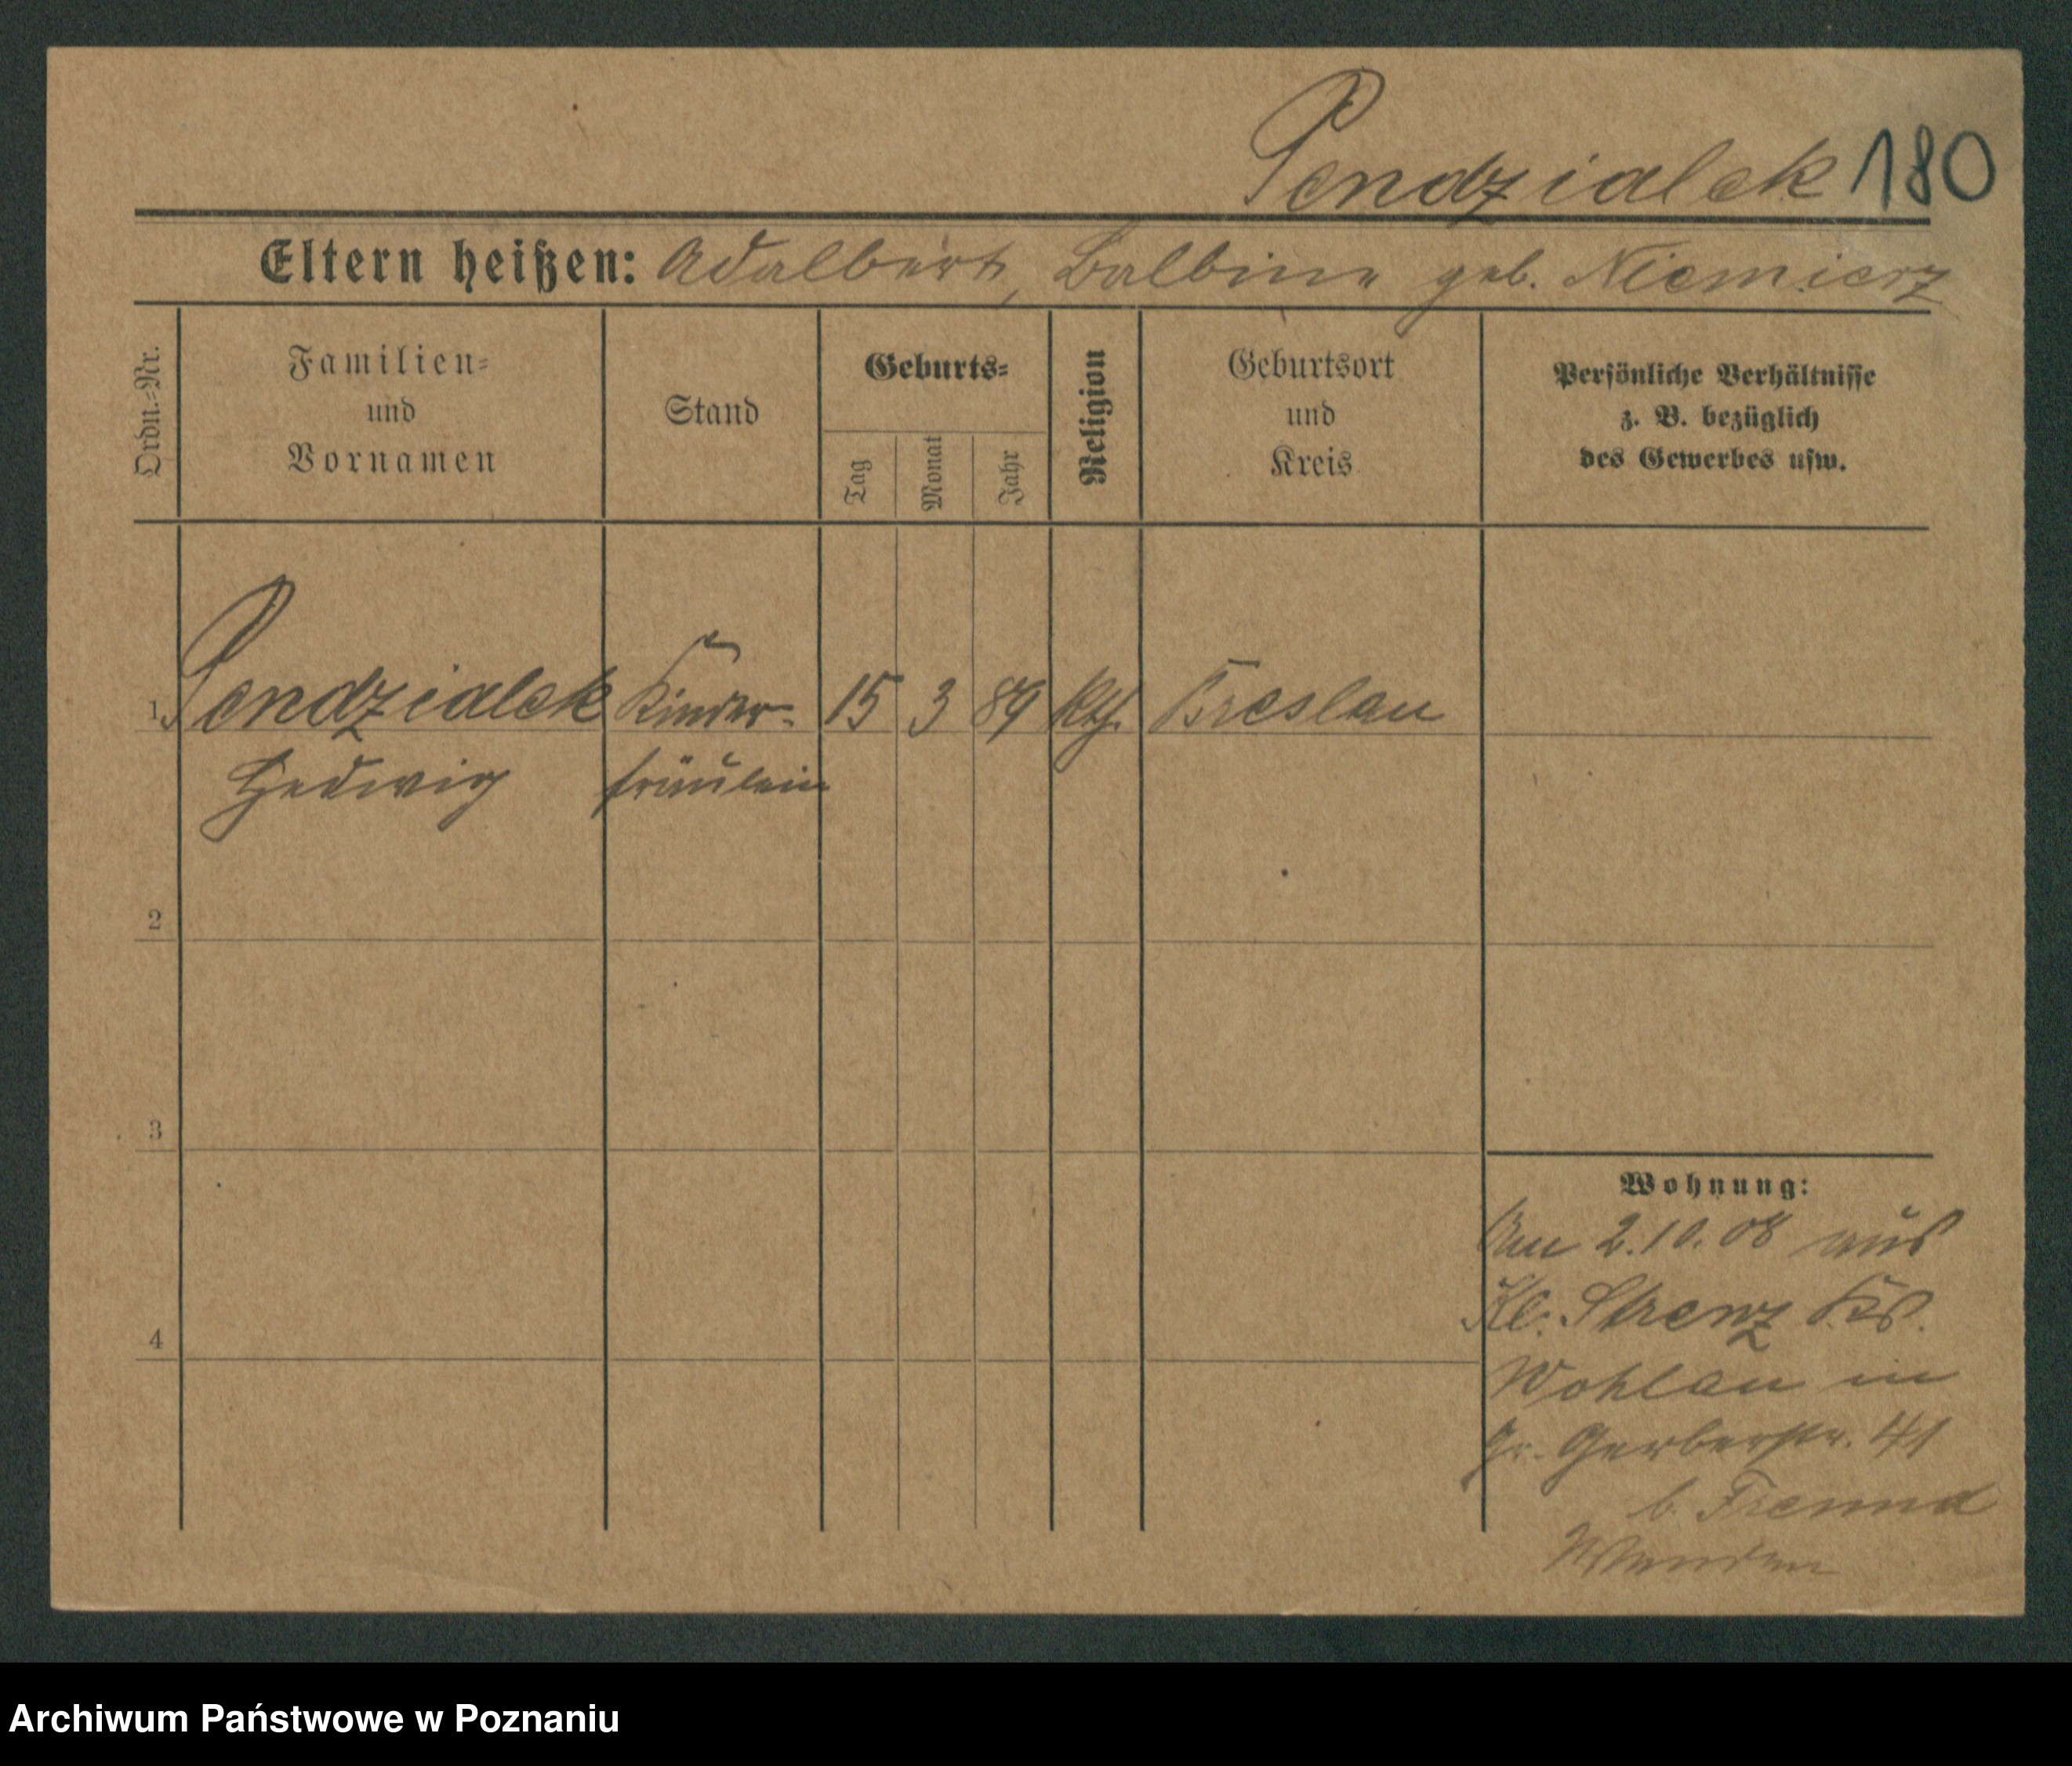 Pendzialek 180
Eltern heißen: Adalbert, Balbine geb. Niemierz
Ordn.-Nr.
Familien-
und
Vornamen
Stand
Geburts-
Tag
Monat
Jahr
Religion
Geburtsort
und
Kreis
Persönliche Verhältnisse
z. B. bezüglich
des Gewerbes usw.
1 Pendzialek Kinder- 15 3 89 kth. Breslau
Hedwig fräulein
2
3
4
Wohnung:
Am 2.10.08 aus
Kl. Strenz Krs.
Wohlau in
Gr. Gerberstr. 41
b. Freund
Archiwum Państwowe w Poznaniu